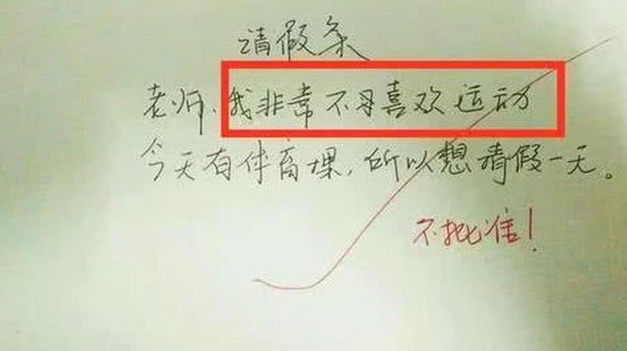 请假条
老师、我非常不喜欢运动
今天有体育课，所以想请假一天。
不批准！